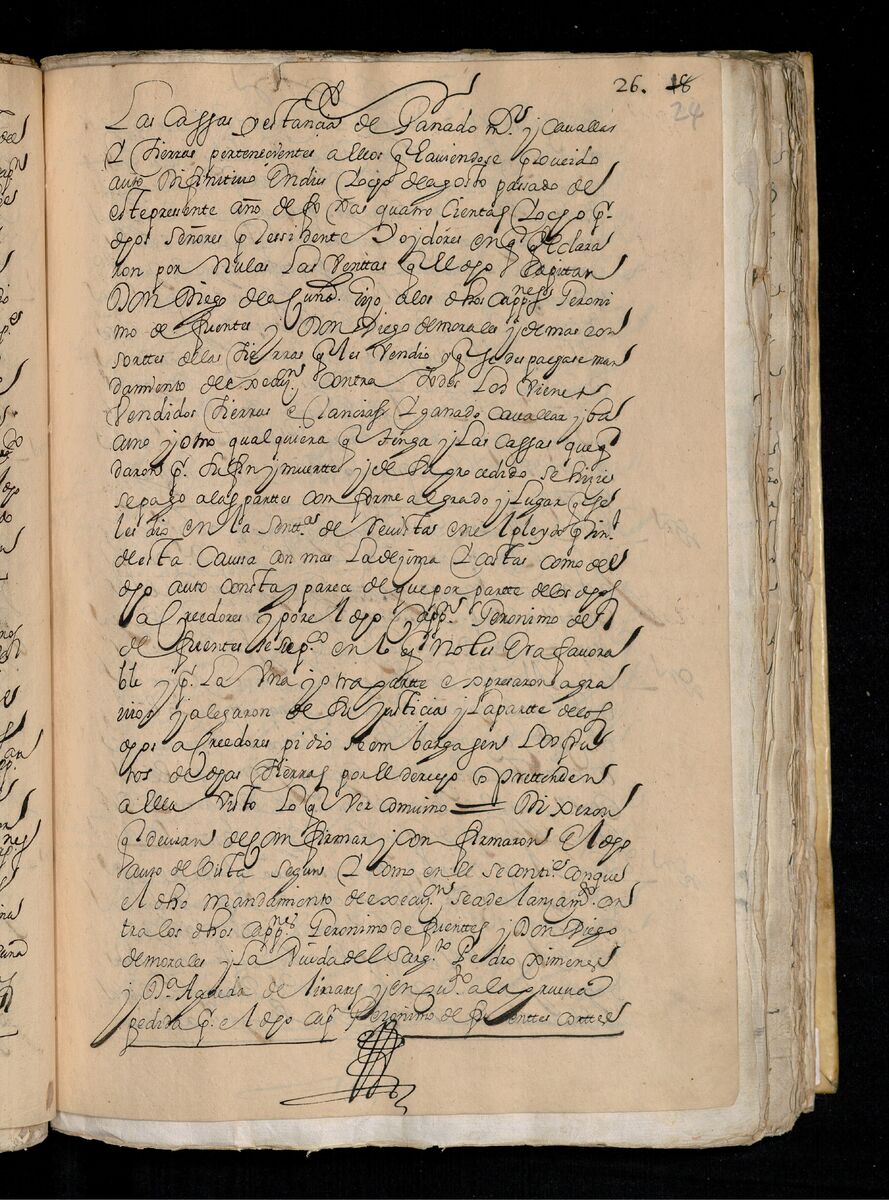 26. 18
24
Las Cassas y estancias de Ganado m.or y Cavallar
y tierras pertenecientes a ellos q haviendose proveido
auto Difinitivo En dies y ocho de agosto passado de
este presente año de
por Nulas Las Ventas q El dho Capitan
Don Diego de la Cuna hizo a los dhos Capp.nes Geroni
mo de fuentes y Don Diego de morales y demas con
sortes de las tierras q les Vendio y q se despachase man
damiento de execu.on contra todos Los Vienes
Vendidos tierras estancias y ganado Cavallar y ba
cuno y otro qualquiera q tenga y Las Cassas que q
daron p.r su fin y muerte y de su prosedido se hisie
se pago a las partes conforme al grado y Lugar q se
les dio en la sent.as de Revista en el pleyto prin.l
de esta Caussa con mas La desima y Costas como del
dho auto consta y parece de que por parte de los dhos
acreedores y por el dho Capp.n Geronimo de
de fuentes se sup.co en lo q No les Era favora
ble y p.r La Una y otra parte expresaron agra
vios y alegaron de su justicia y La parte de los
dhos acreedores pidio se embargasen Los fru
tos de dhas tierras por El derecho q pretenden
a ellas Visto Lo q Ver combino = Dixeron
q devian de Confirmar y confirmaron El dho
auto de Vista segun y como en el se conti.e con que
el dho mandamiento de execu.on sea de lansam.to con
tra los dhos Capp.nes Geronimo de fuentes y Don Diego
de morales y La Viuda del Sarg.to Pedro Ximenes
y D.a Agueda de Linares y en qu.to a la prueva
pedida p.r el dho Cap.n Geronimo de fuenttes